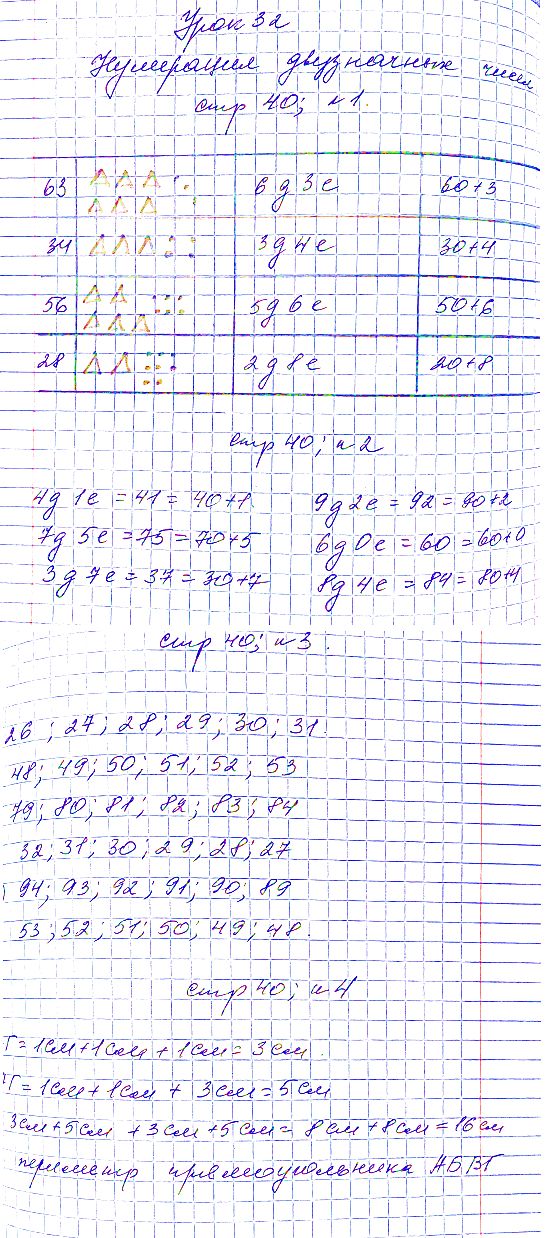 Урок 32
Нумерация двузначных чисел
стр 40; н1.
63 6 д 3 е 60+3
34 3 д 4 е 30+4
56 5 д 6 е 50+6
28 2 д 8 е 20+8
стр 40; н2
4д 1е = 41 = 40+1 9д 2е = 92 = 90+2
7д 5е = 75 = 70+5 6д 0е = 60 = 60+0
3д 7е = 37 = 30+7 8д 4е = 84 = 80+4
стр 40; н3.
26; 27; 28; 29; 30; 31.
48; 49; 50; 51; 52; 53
79; 80; 81; 82; 83; 84
32; 31; 30; 29; 28; 27
94; 93; 92; 91; 90; 89
53; 52; 51; 50; 49; 48.
стр 40; н4
Г = 1см + 1см + 1см = 3см.
Г = 1см + 1см + 3см = 5см
3см + 5см + 3см + 5см = 8см + 8см = 16см
периметр прямоугольника АБВГ